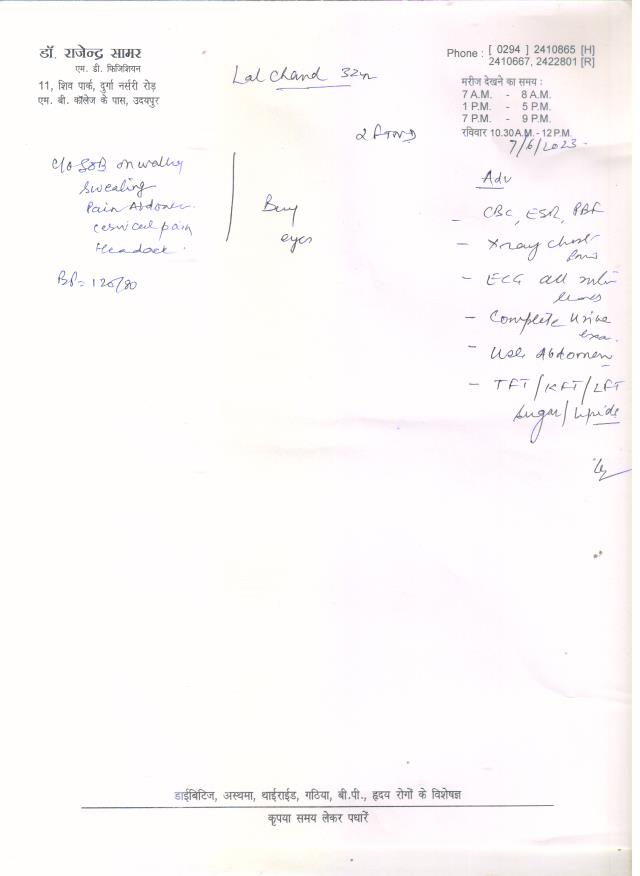 डॉ. राजेन्द्र सामर
एम. डी. फिजिशियन
11, शिव पार्क, दुर्गा नर्सरी रोड़
एम. बी. कॉलेज के पास, उदयपुर
Phone : [ 0294 ] 2410865 [H]
2410667, 2422801 [R]
मरीज देखने का समय :
7 A.M. - 8 A.M.
1 P.M. - 5 P.M.
7 P.M. - 9 P.M.
रविवार 10.30 A.M. - 12 P.M.
Lal Chand 32
7/6/2023
C/o SOB on
Sweating
Pain Abdomen
cervical pain
Headache
BP = 120/80
eyes
Adv
- CBC, ESR, PBF
- Xray Chest
- ECG all
leads
- Complete Urine
exa.
- USG Abdomen
- TFT / KFT / LFT
Sugar / Lipids
डाईबिटिज, अस्थमा, थाईराईड, गठिया, बी.पी., हृदय रोगों के विशेषज्ञ
कृपया समय लेकर पधारें